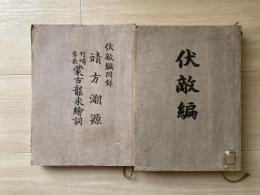 伏敵編
伏敵編附録
靖方溯源
竹崎季長蒙古襲来繪詞